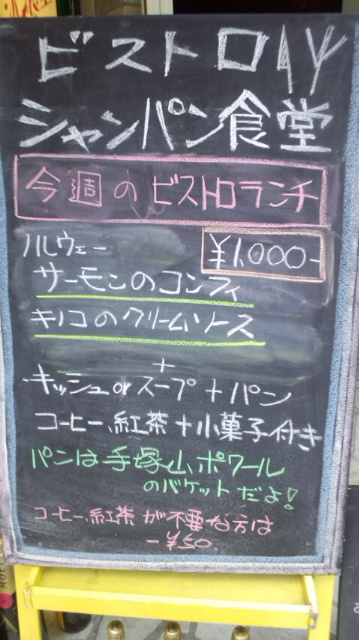 ビストロ
シャンパン食堂
今週のビストロランチ
¥1,000-
ノルウェー
サーモンのコンフィ
キノコのクリームソース
+
キッシュorスープ+パン
コーヒー、紅茶+小菓子付き
パンは手塚山ポワール
のバケットだよ!
コーヒー、紅茶が不要な方は
-¥50